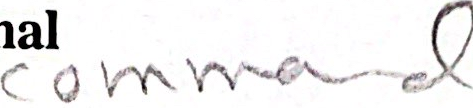 nal
command